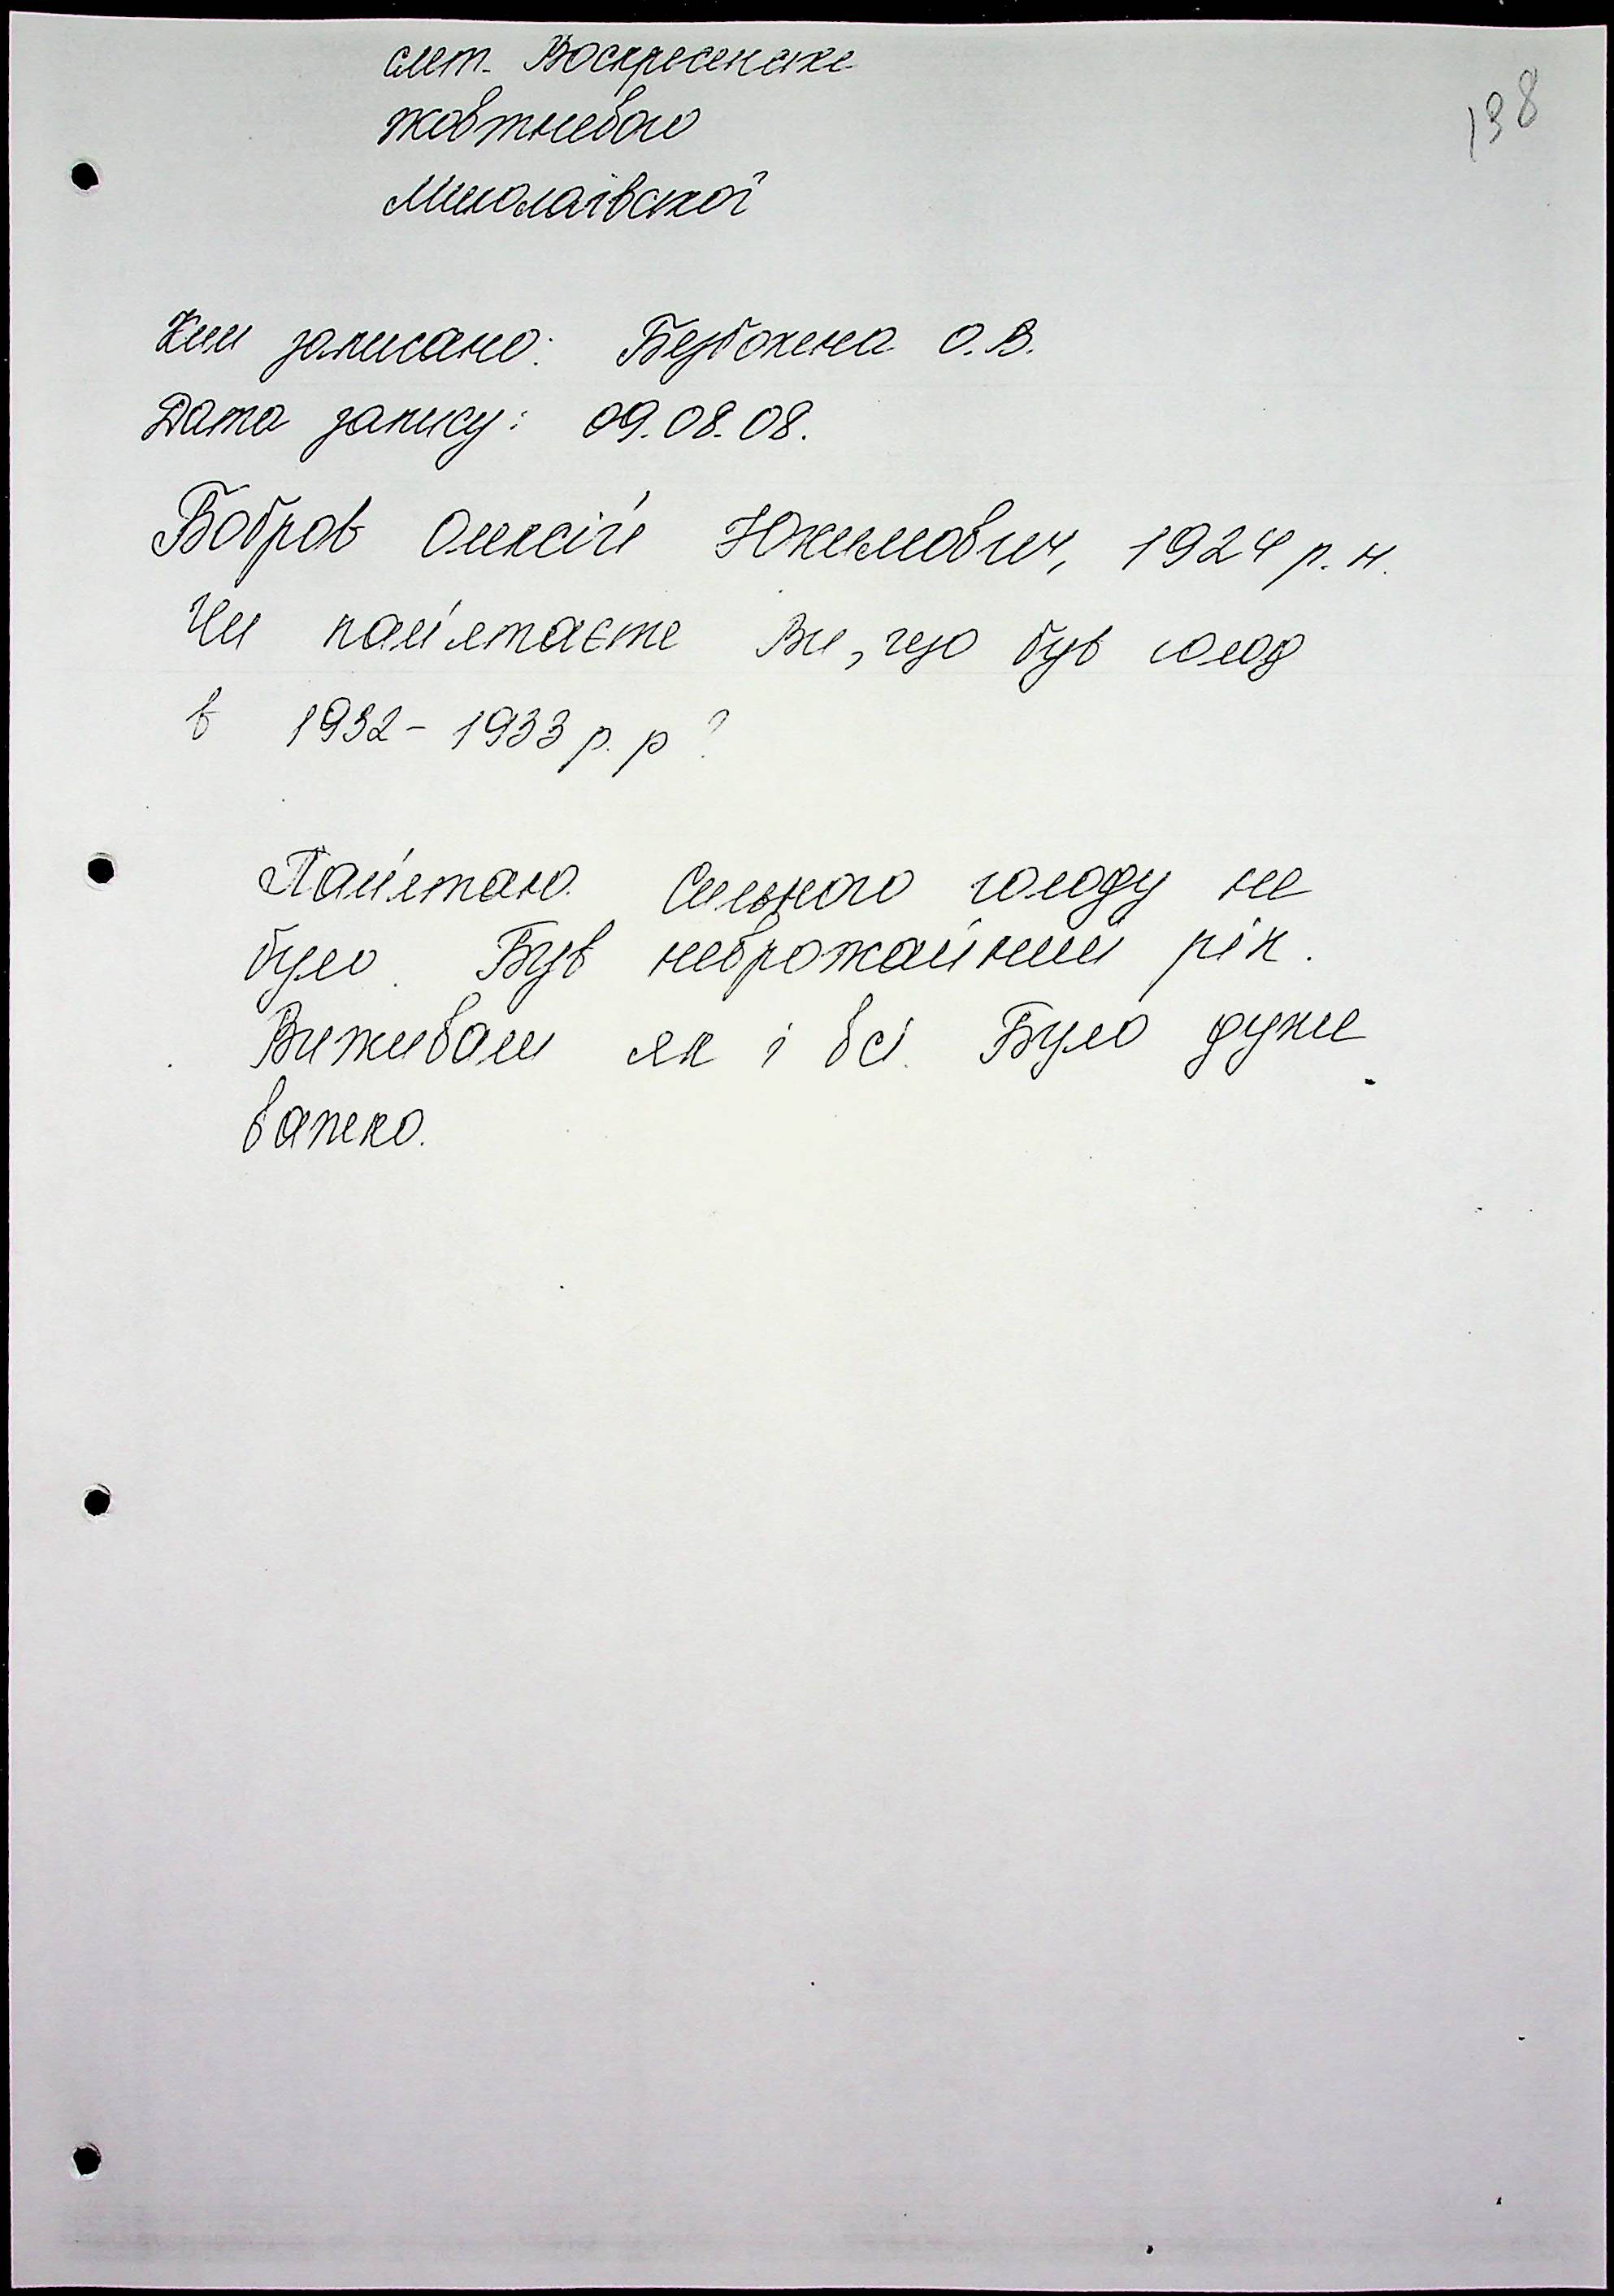 смт. Воскресенське
138
Жовтневого
Миколаївської
Ким записано: Безбожена О.В.
Дата запису: 09.08.08.
Бобров Олексій Юхимович, 1924 р.н.
Чи пам'ятаєте Ви, що був голод
в 1932-1933 р.р?
Пам'ятаю. Сильного голоду не
було. Був неврожайний рік.
Виживали як і всі. Було дуже
важко.